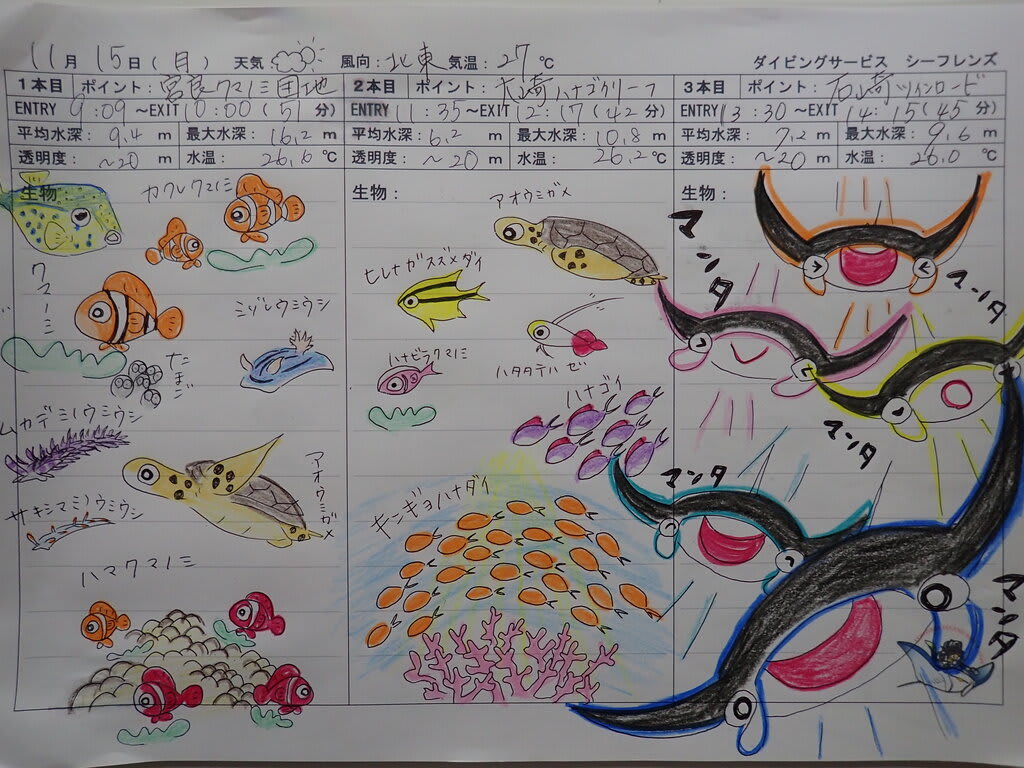 11月15日(月) 天気 風向:北東 気温:27℃ ダイビングサービス シーフレンズ
1本目 ポイント:宮良クマノミ団地
ENTRY 9:09~EXIT 10:00(51分)
平均水深:9.4m 最大水深:16.2m
透明度:~20m 水温:26.6℃
生物:
カクレクマノミ
クマノミ
ミゾレウミウシ
たまご
ムカデミノウミウシ
アオウミガメ
サキシマミノウミウシ
ハマクマノミ
2本目 ポイント:大崎ハナゴイリーフ
ENTRY 11:35~EXIT 12:17(42分)
平均水深:6.2m 最大水深:10.8m
透明度:~20m 水温:26.2℃
生物:
アオウミガメ
ヒレナガスズメダイ
ハナビラクマノミ
ハタタテハゼ
ハナゴイ
キンギョハナダイ
3本目 ポイント:石崎ツインロード
ENTRY 13:30~EXIT 14:15(45分)
平均水深:7.2m 最大水深:9.6m
透明度:~20m 水温:26.0℃
生物:
マンタ
マンタ
マンタ
マンタ
マンタ